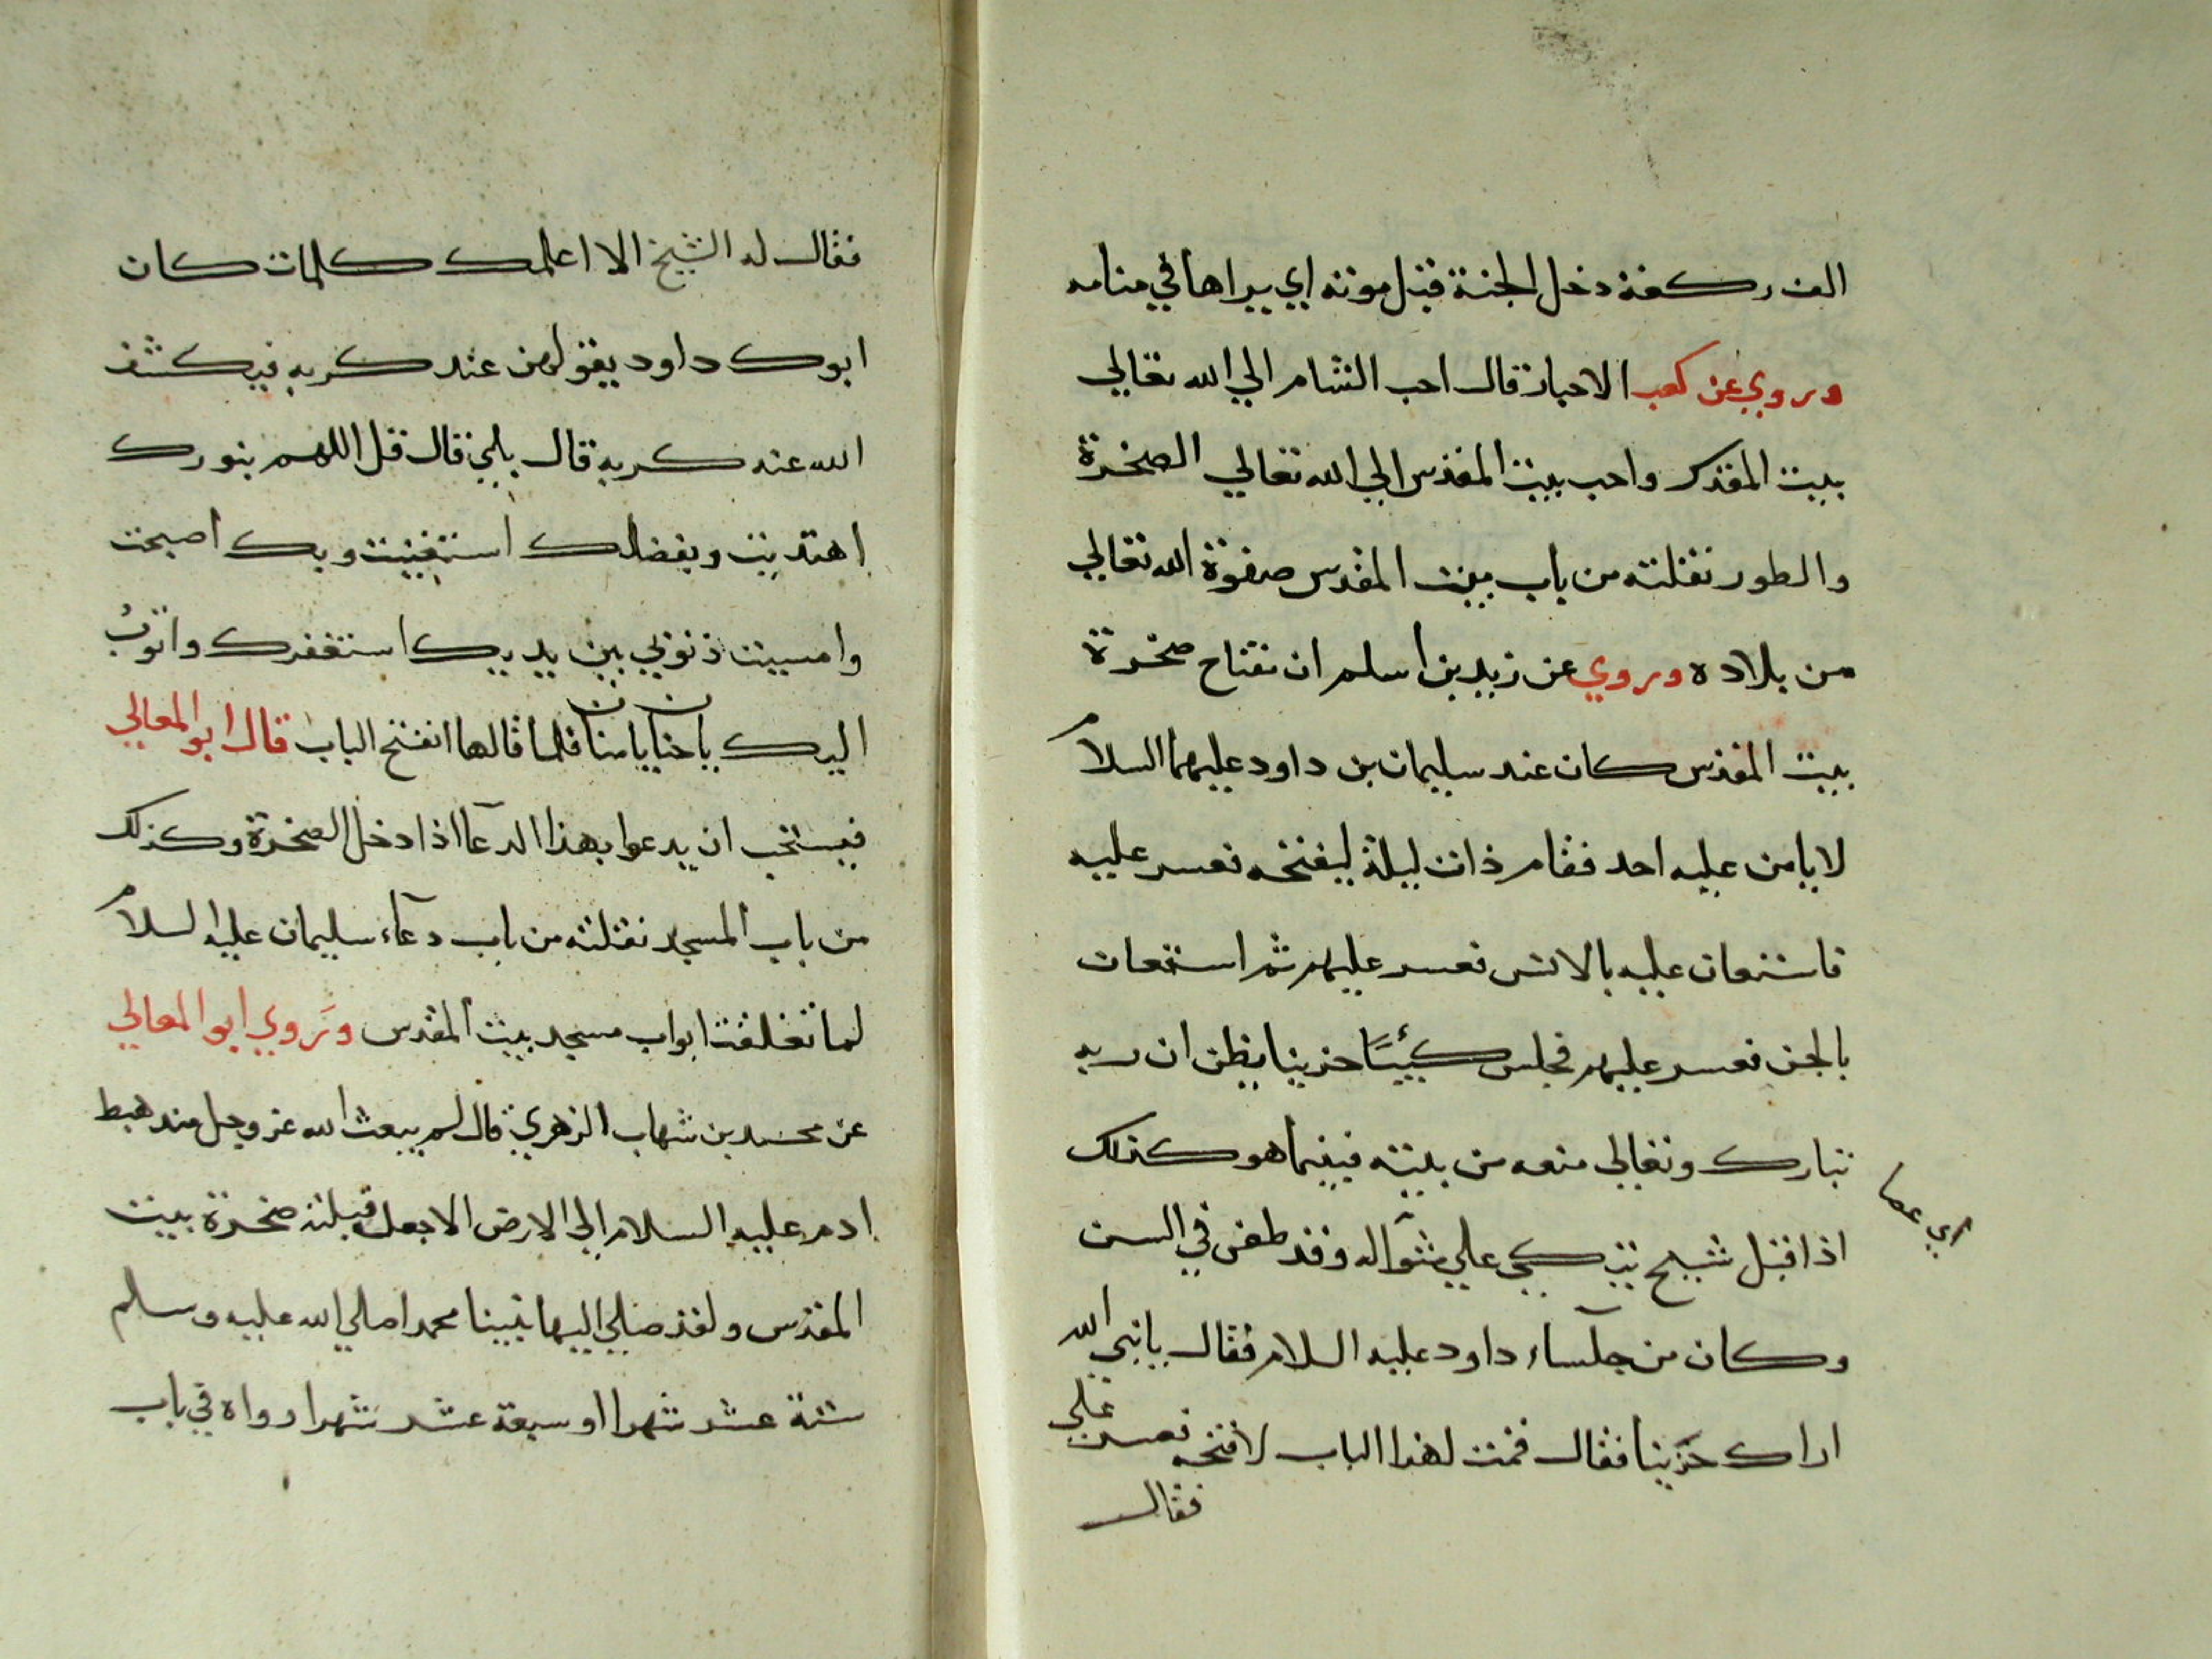 الف ركعة دخل الجنة قبل موته اي يراها في منامه
وروي عن كعب الاحبار قال احب الشام الي الله تعالي
بيت المقدس واحب بيت المقدس الي الله تعالي الصخرة
والطور نقلته من باب بيت المقدس صفوة الله تعالي
من بلاده وروي عن زيد بن اسلم ان مفتاح صخرة
بيت المقدس كان عند سليمان بن داود عليهما السلام
لا يامن عليه احد فقام ذات ليلة ليفتحه فعسر عليه
فاستعان عليه بالانس فعسر عليهم ثم استعان
بالجن فعسر عليهم فجلس كئيبًا حزينا يظن ان ربه
تبارك وتعالي منعه من بيته فبينما هو كذلك
اذ اقبل شيخ يتكي علي متوآله وقد طعن في السن
اي عصا
وكان من جلساء داود عليه السلام فقال يا نبي الله
اراك حزينا فقال قمت لهذا الباب لافتحه فعسر علي
فقال
فقال له الشيخ الا اعلمك كلمات كان
ابوك داود يقولهن عند كربه فيكشف
الله عنه كربه قال بلي قال قل اللهم بنورك
اهتديت وبفضلك استغنيت وبك اصبحت
وامسيت ذنوبي بين يديك استغفرك واتوبُ
اليك يا حنان يا منان فلما قالها انفتح الباب قال ابو المعالي
فيستحب ان يدعوا بهذا الدعآ اذا دخل الصخرة وكذلك
من باب المسجد نقلته من باب دعآء سليمان عليه السلام
لما تغلقت ابواب مسجد بيت المقدس وَروي ابو المعالي
عن محمد بن شهاب الزهري قال لم يبعث الله عز وجل منذ هبط
ادم عليه السلام الي الارض الا جعل قبلته صخرة بيت
المقدس ولقد صلي اليها نبينا محمد صلي الله عليه وسلم
ستة عشر شهرا او سبعة عشر شهرا رواه في باب